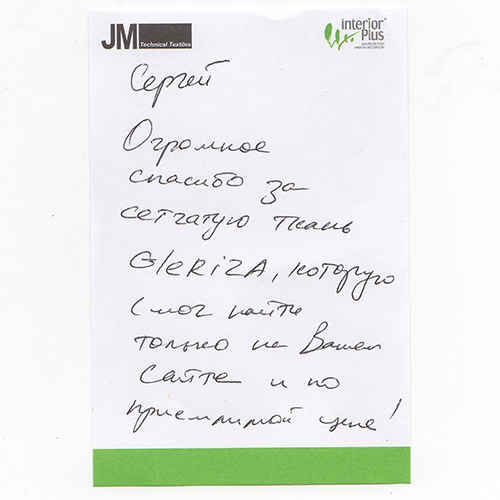 JM
Technical Textiles
interior
Plus
SUN PROTECTION
WINDOW DECORATION
Сергей
Огромное
спасибо за
сетчатую ткань
GleRiZA, которую
смог найти
только на Вашем
сайте и по
приемлимой цене!